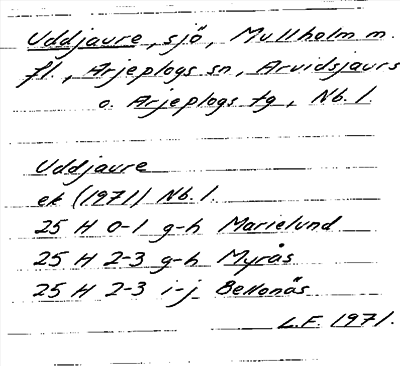 Uddjaure, sjö, Mullholm m.
fl., Arjeplogs sn, Arvidsjaurs
o. Arjeplogs tg, Nb. l.
Uddjaure
ek (1971) Nb. l.
25 H 0-1 g-h Marielund
25 H 2-3 g-h Myrås
25 H 2-3 i-j Bellonäs
L.F. 1971.